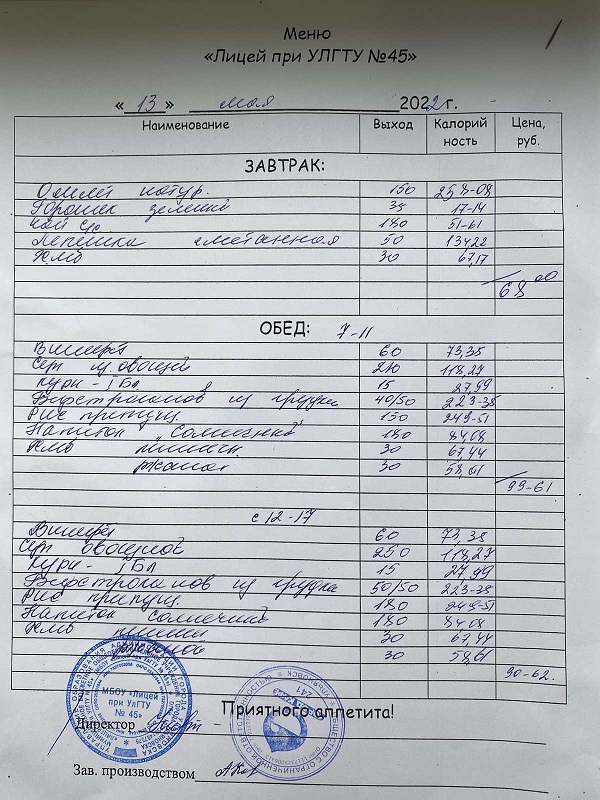 Меню
«Лицей при УЛГТУ №45»
« 13 » мая 2022 г.
Наименование Выход Калорий ность Цена, руб.
ЗАВТРАК:
Омлет натур. 150 258-08
Горошек зелёный 35 17-14
Чай с/с 180 51-61
Лепешка сметанная 50 134,22
Хлеб 30 67,17
68 00
ОБЕД: 7-11
Винегрет 60 73,35
Суп из овощей 210 118,27
Куры - I Бл 15 27,99
Бефстроганов из грудки 40/50 223-38
Рис припущ. 150 249-51
Напиток „Солнечный" 180 84,08
Хлеб пшеничн. 30 67,44
ржаной 30 58,61
99-61
с 12-17
Винегрет 60 73,38
Суп овощной 250 118,27
Куры - I Бл 15 27,99
Бефстроганов из грудки 50/50 223-38
Рис припущ. 180 249-51
Напиток солнечный 180 84,08
Хлеб пшенич 30 67,44
ржаной 30 58,61
90-62.
МБОУ «Лицей
при УлГТУ
№ 45»
Приятного аппетита!
Директор
Зав. производством